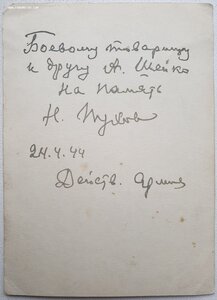 Боевому товарищу
и другу А. Шейко
на память
Н. Пухов
24.4.44
Действ. армия